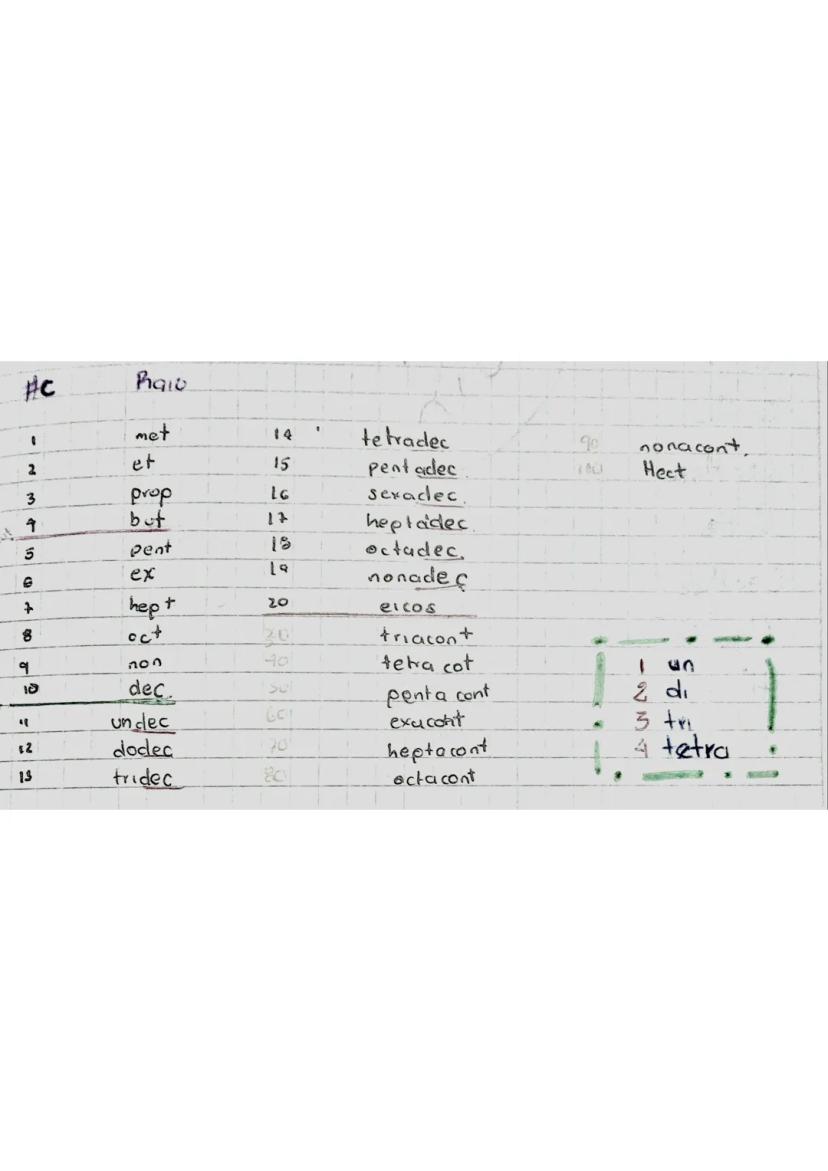 #C Raiz
1 met
2 et
3 prop
4 but
5 pent
6 ex
7 hept
8 oct
9 non
10 dec.
11 undec
12 dodec
13 tridec
14 tetradec
15 pentadec.
16 sexadec.
17 heptadec.
18 octadec.
19 nonadec
20 eicos
30 triacont
40 tetra cot
50 penta cont
60 exacont
70 heptacont
80 octacont
90 nonacont.
100 Hect
1 un
2 di
3 tri
4 tetra